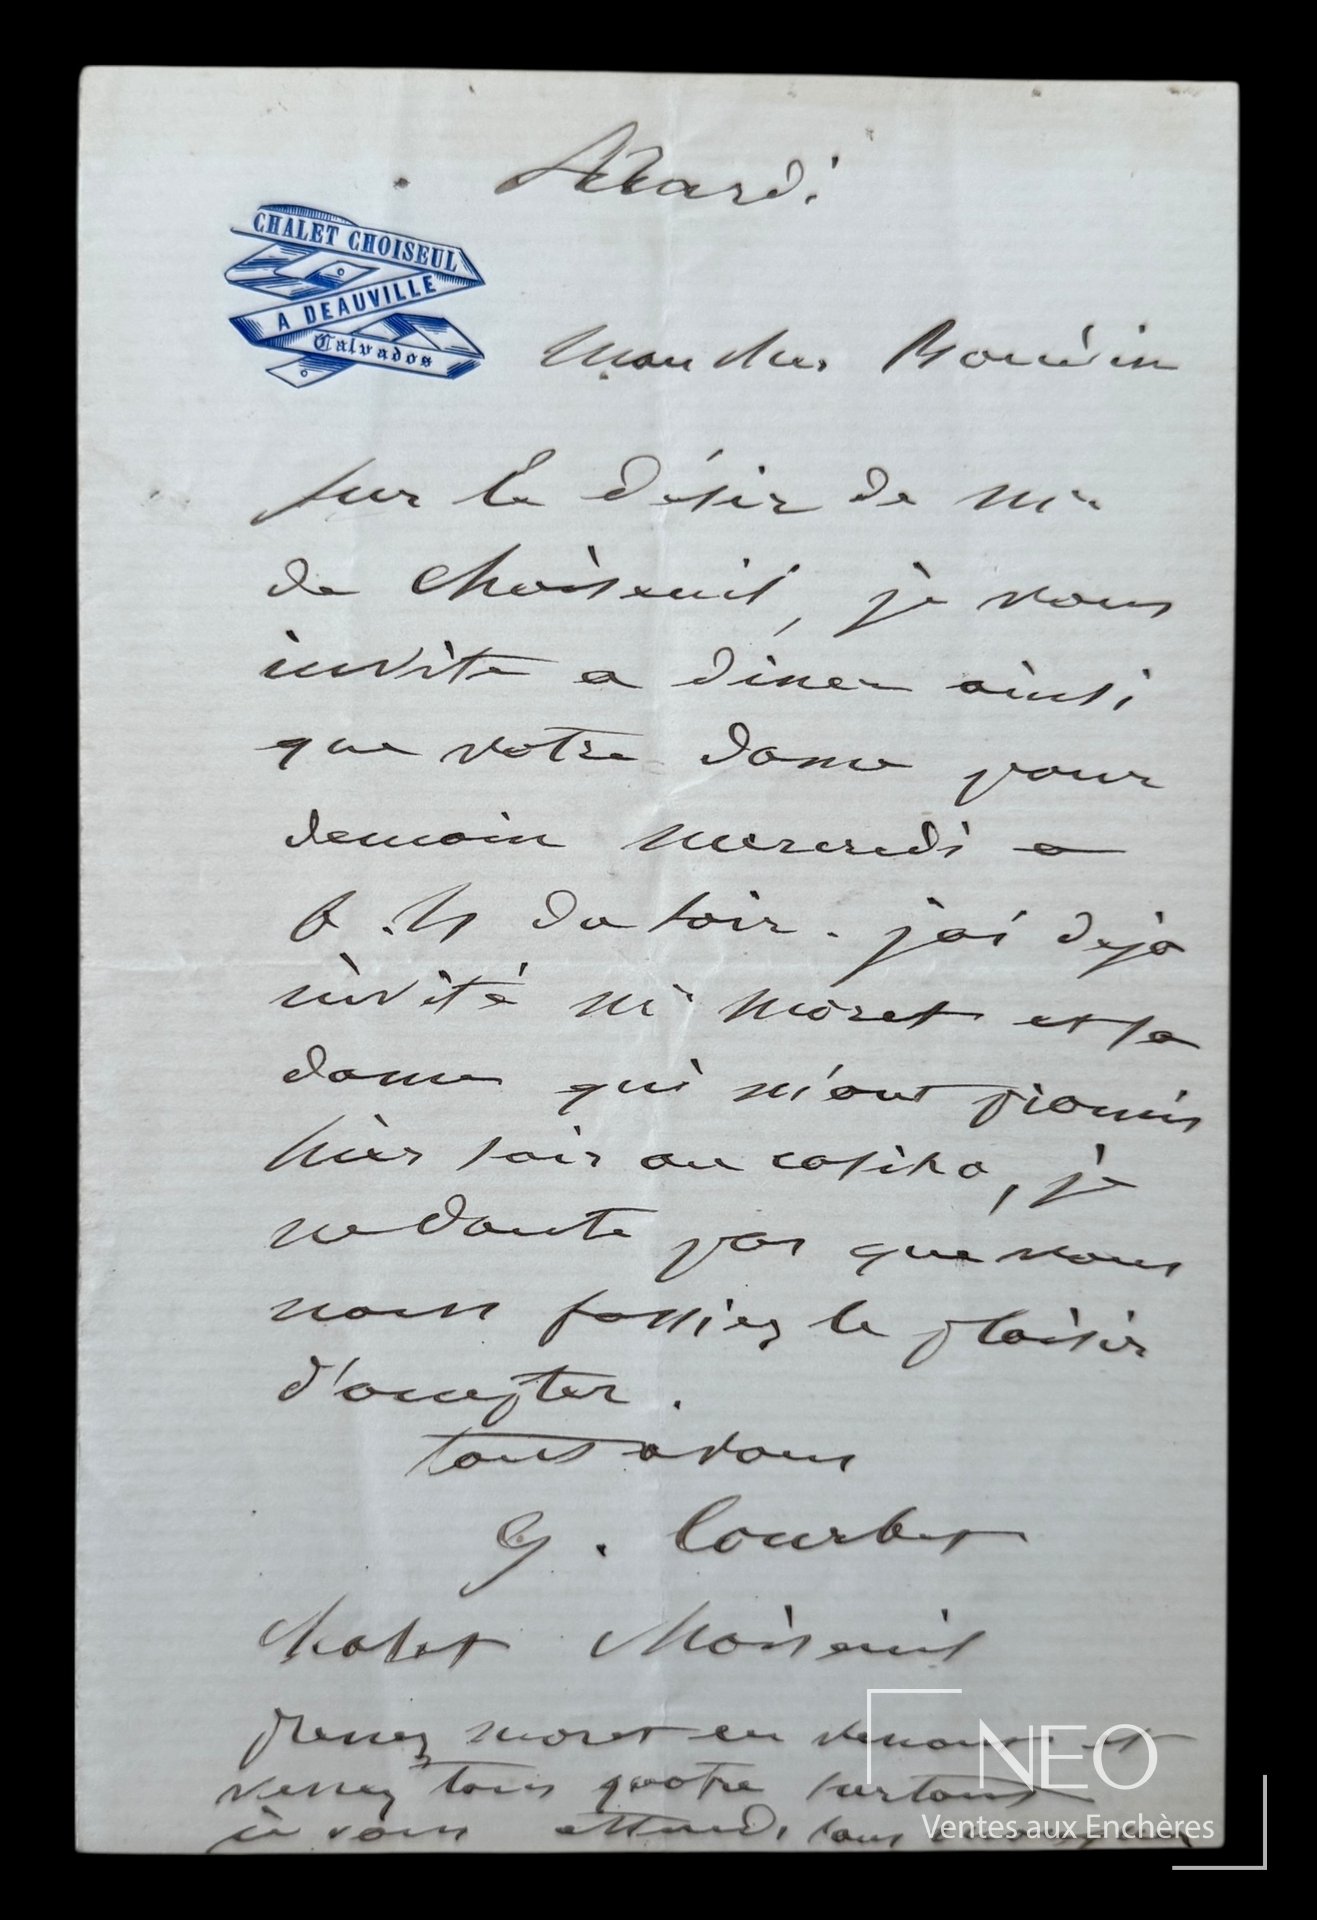 Mardi
CHALET CHOISEUL
A DEAUVILLE
Calvados
Mon cher Boudin
sur le désir de Mr
de Choiseuil, je vous
invite a diner ainsi
que votre dame pour
demain mercredi a
6 h du soir. j'ai deja
invité Mr Monet et sa
dame qui m'ont promis
hier soir au casino, je
ne doute pas que vous
nous fassiez le plaisir
d'accepter.
tout a vous
G. Courbet
chalet Choiseuil
prenez monet en venant et
venez tous quatre surtout
je vous attends, tous
NEO
Ventes aux Enchères